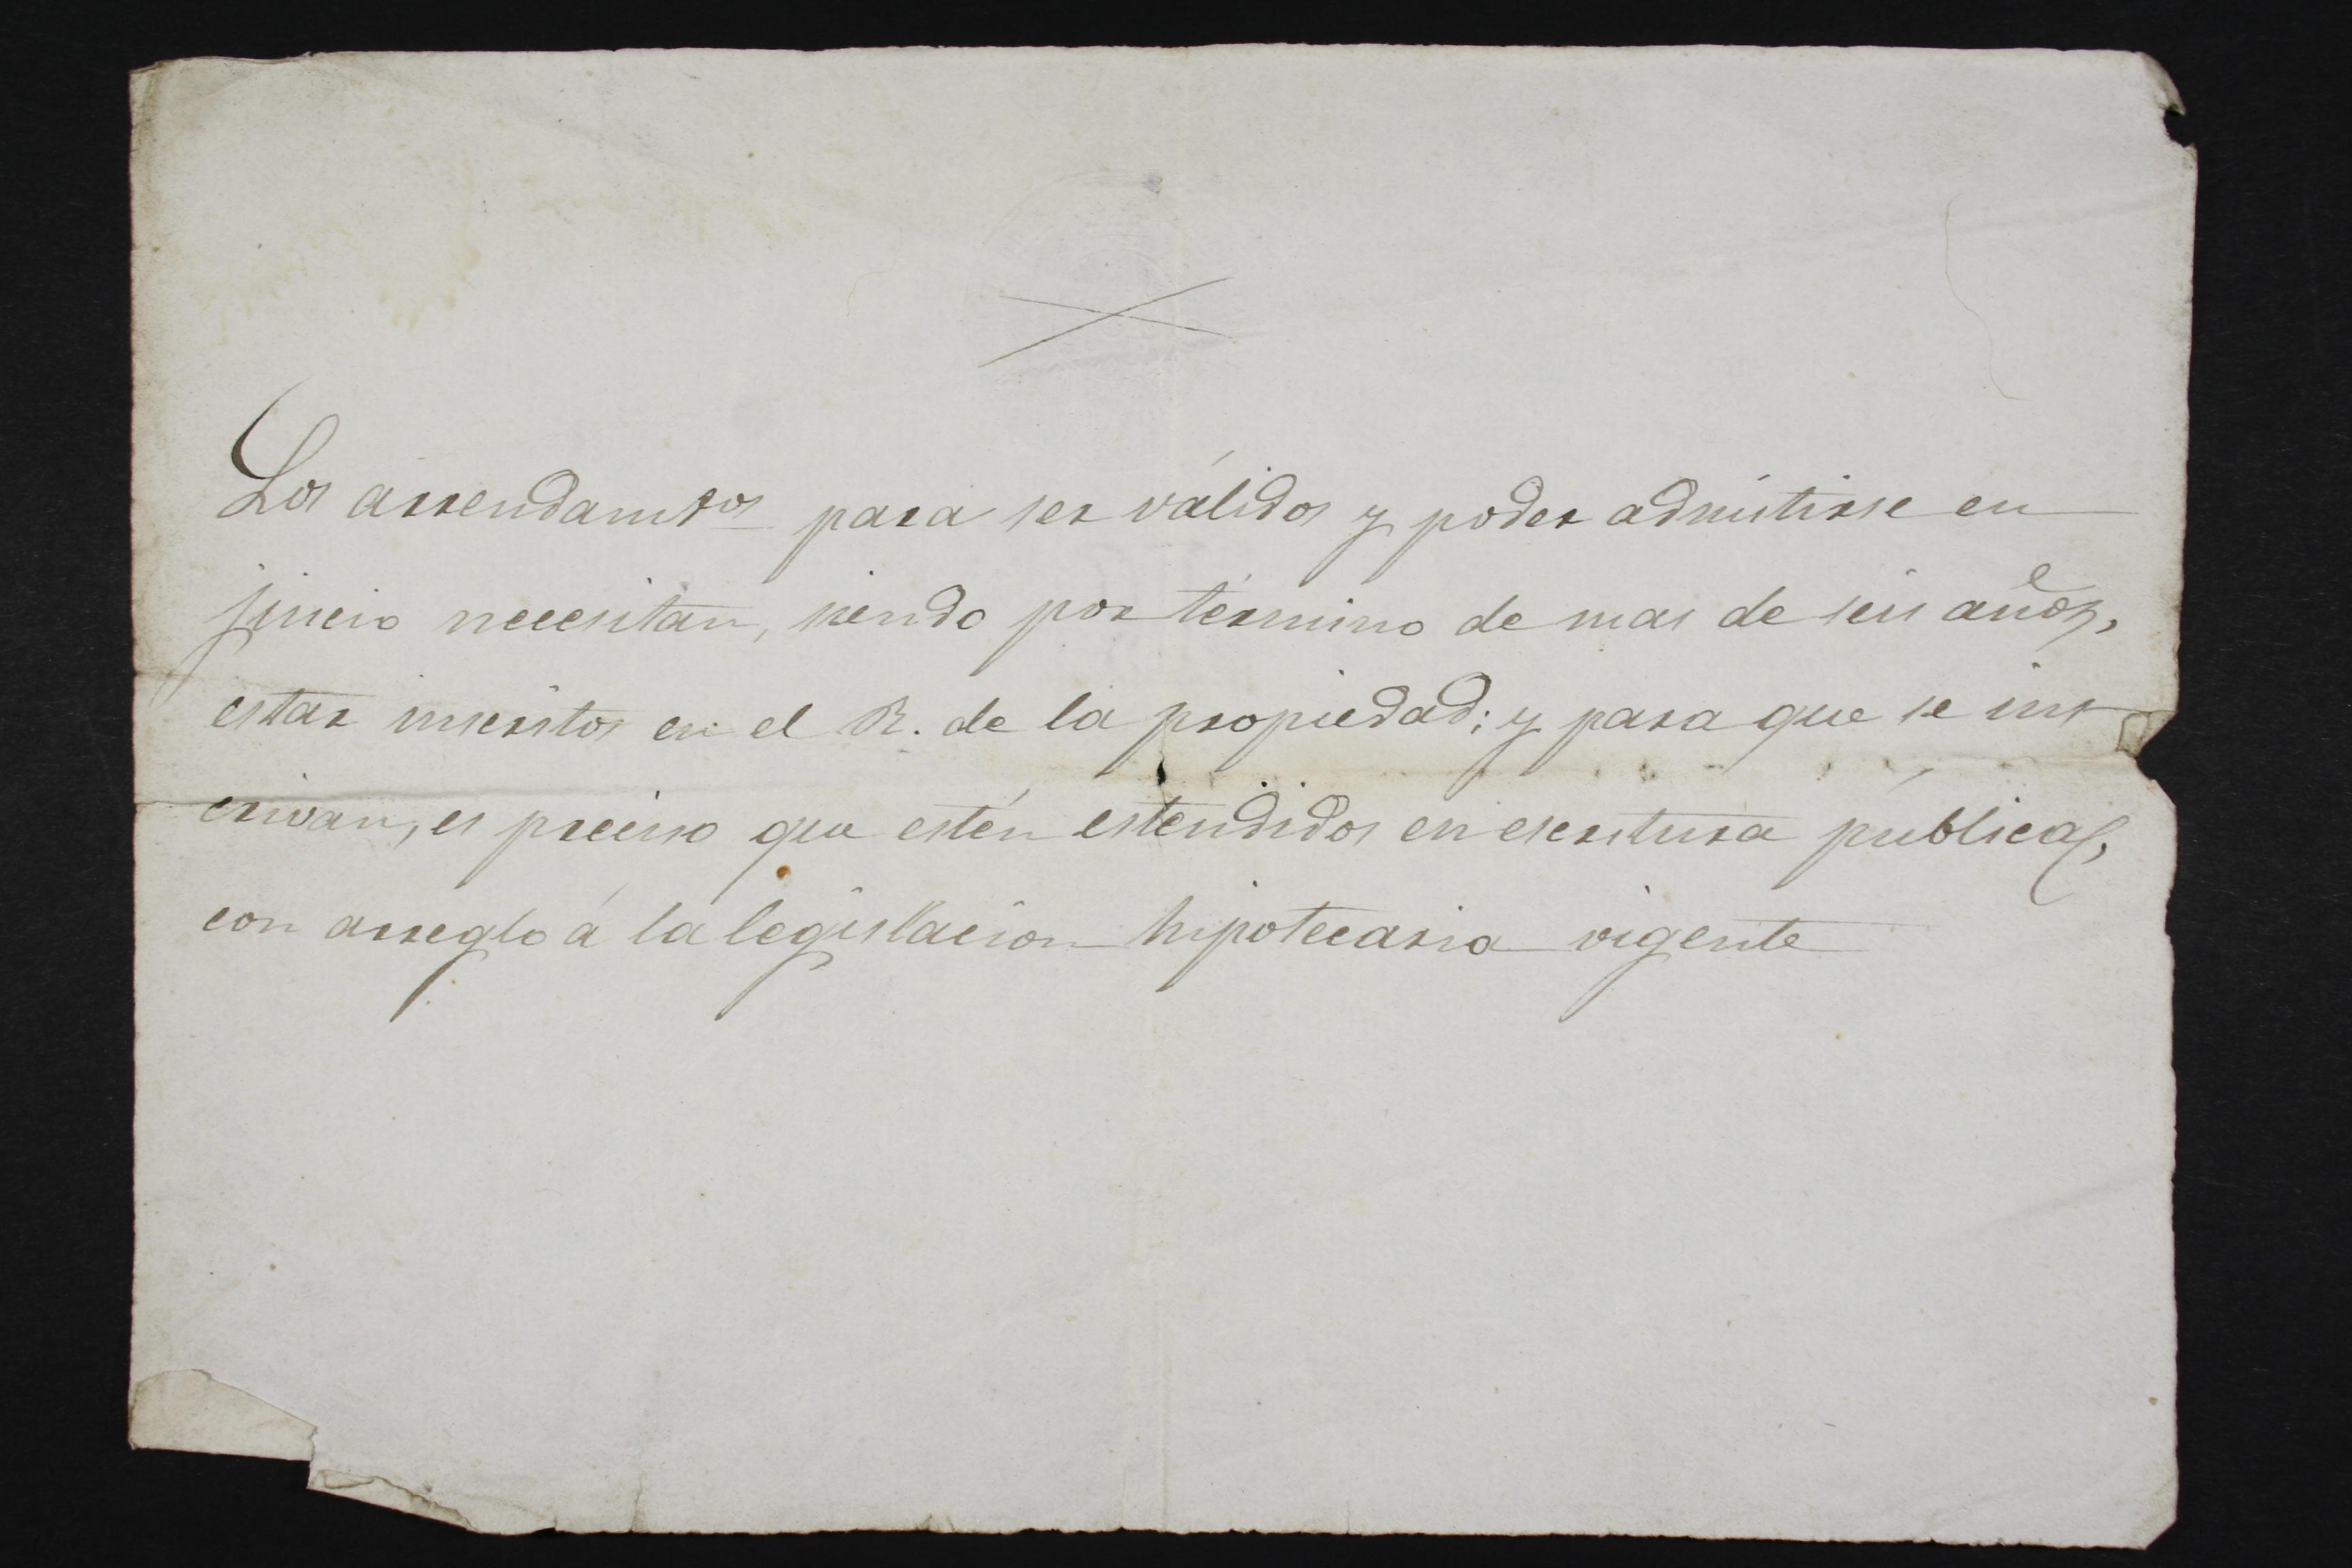 Los arrendamtos para ser válidos y poder admitirse en
juicio necesitan, siendo por término de mas de seis años,
estar inscritos en el R. de la propiedad; y para que se ins
crivan, es preciso que estén estendidos en escritura pública,
con arreglo á la legislacion hipotecaria vigente